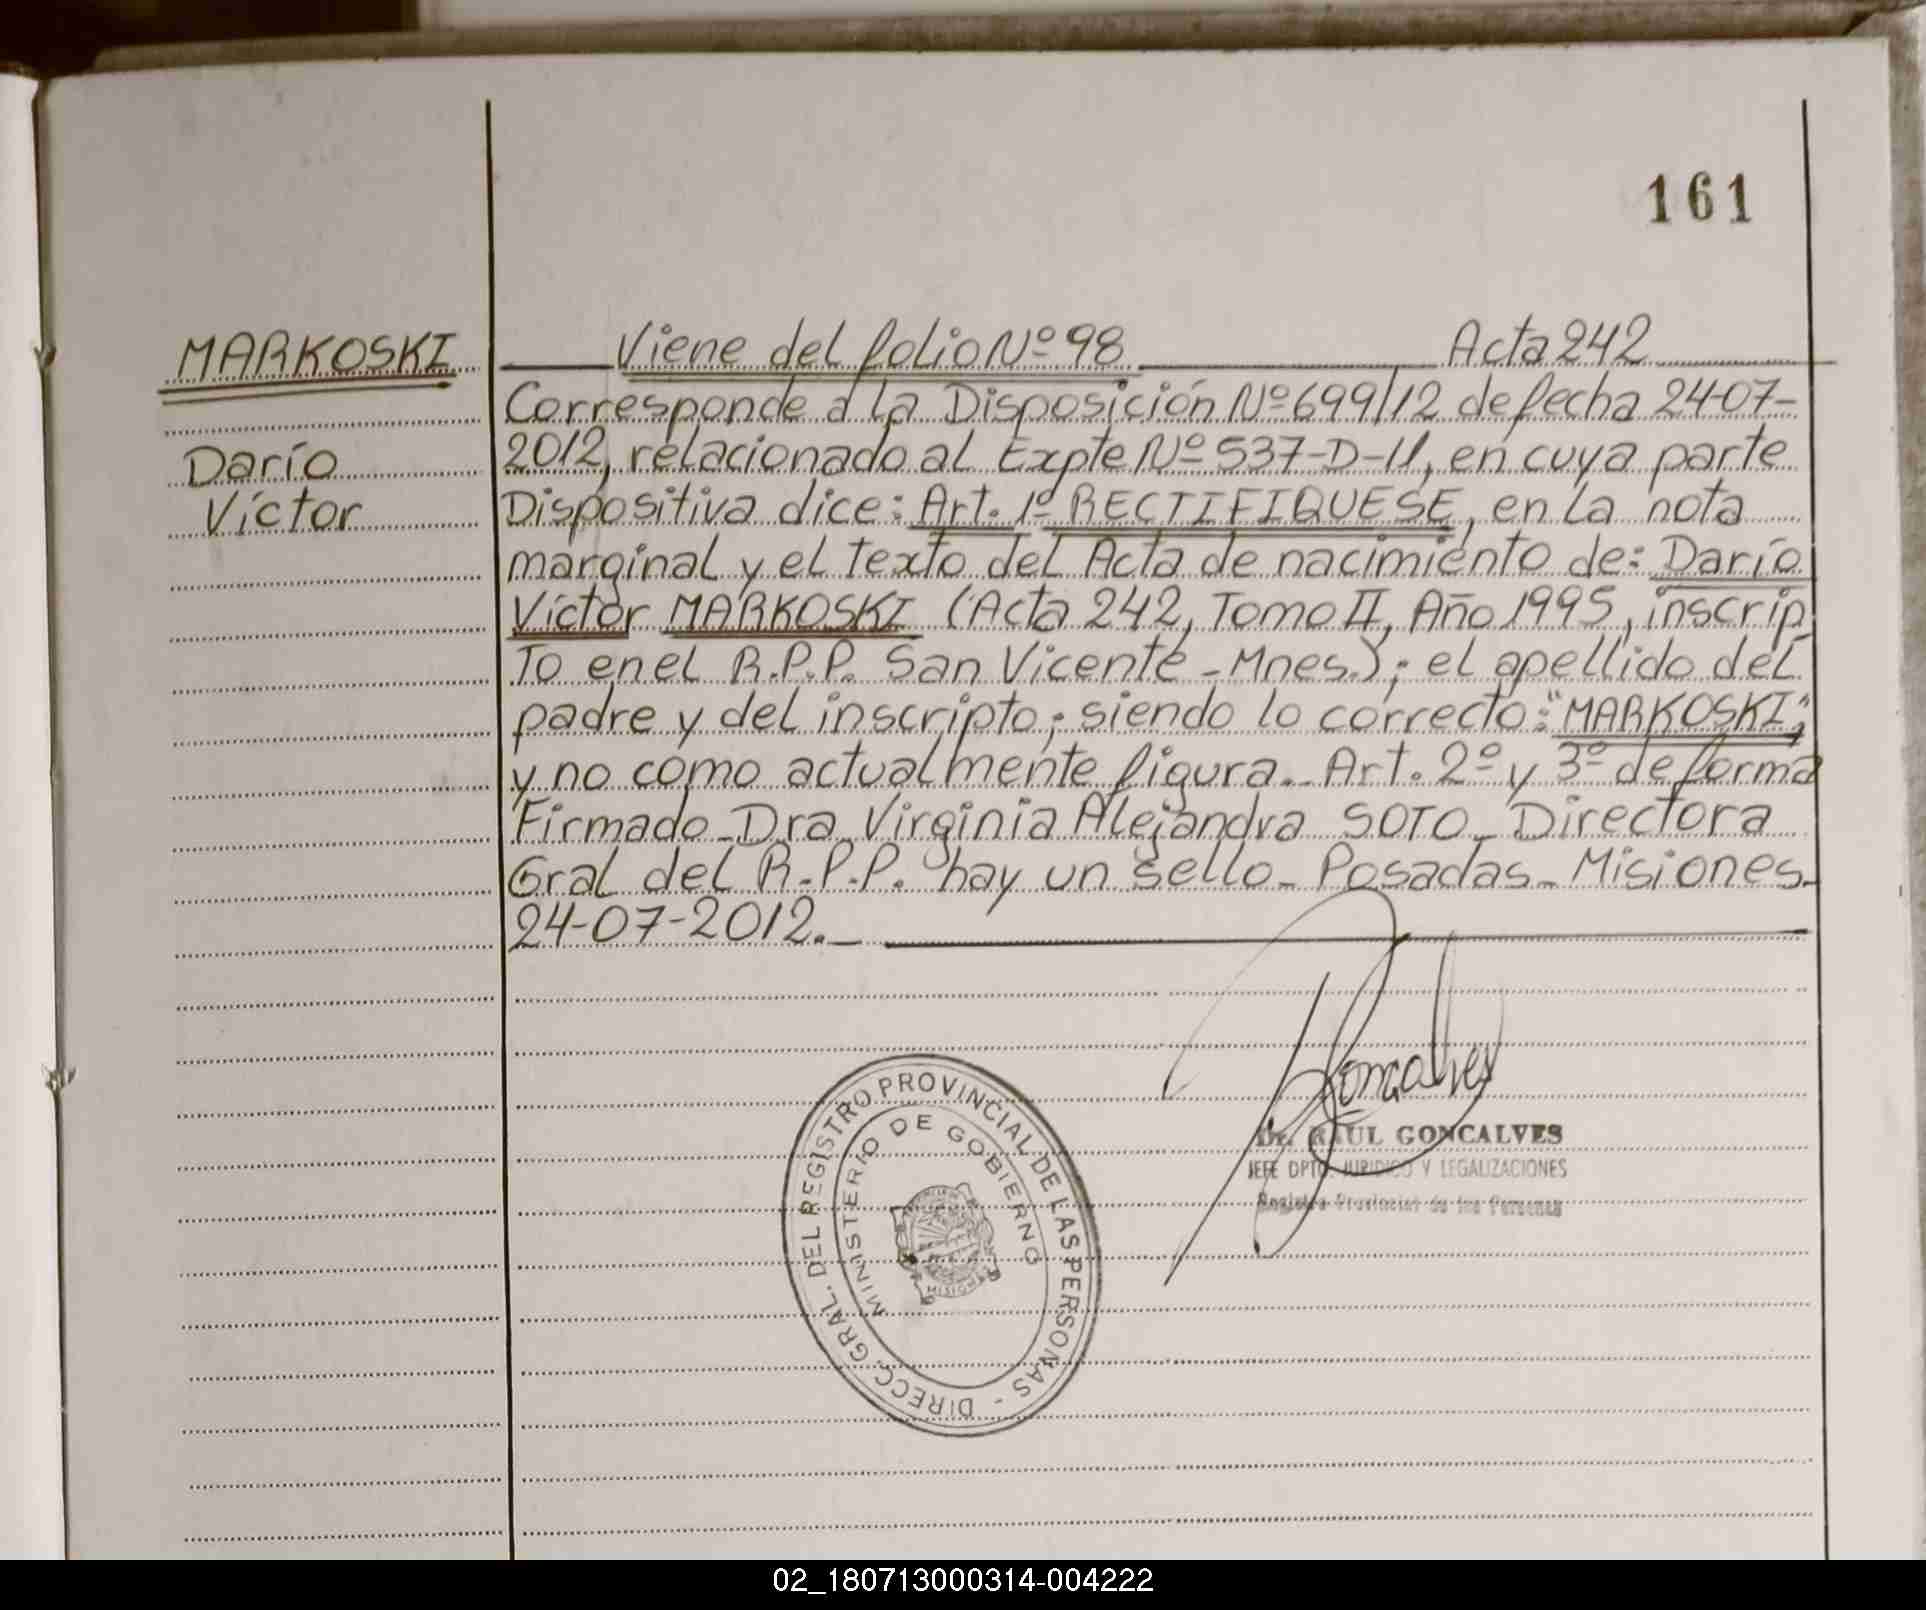 161
MARKOSKI
Darío
Víctor
Viene del folio Nº 98 Acta 242
Corresponde a la Disposición Nº 699/12 de fecha 24-07-
2012, relacionado al Expte Nº 537-D-11, en cuya parte
Dispositiva dice: Art. 1º RECTIFIQUESE, en la nota
marginal y el texto del Acta de nacimiento de: Darío
Víctor MARKOSKI (Acta 242, Tomo II, Año 1995, inscrip
to en el R.P.P. San Vicente - Mnes.); el apellido del
padre y del inscripto; siendo lo correcto: "MARKOSKI",
y no como actualmente figura. Art. 2º y 3º de forma
Firmado - Dra Virginia Alejandra SOTO - Directora
Gral del R.P.P. hay un sello - Posadas - Misiones -
24-07-2012. -
Goncalves
Dr. RAUL GONCALVES
JEFE DPTO. JURIDICO Y LEGALIZACIONES
Registro Provincial de las Personas
DIRECC. GRAL. DEL REGISTRO PROVINCIAL DE LAS PERSONAS -
MINISTERIO DE GOBIERNO
MISIONES
02_180713000314-004222